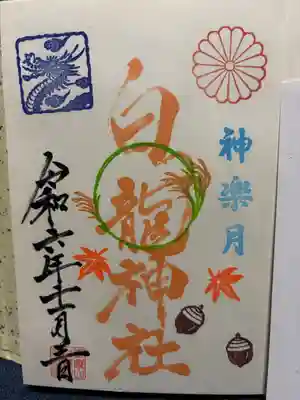 神楽月
白龍神社
令和六年十一月二日